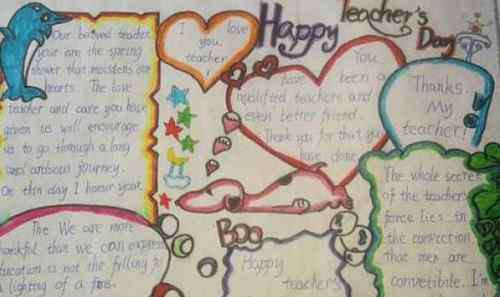 Our beloved teacher,
your are the spring
shower that moistens our
hearts. The love
teacher and care you have
given us will encourage
us to go through a long
and arduous journey.
On this day I honor your.
I love
you,
teacher
!
Happy
Teacher's
Day
You
have been a
qualified teachers and
even better friend.
Thank you for that you
have done
Thanks.
My
teacher!
The We are more
thankful than we can express
Education is not the filling fo
lighting of a
Boo
Happy
teachers
The whole secre
of the teacher's
force lies in
the conviction
that men are
convetibile. I'm